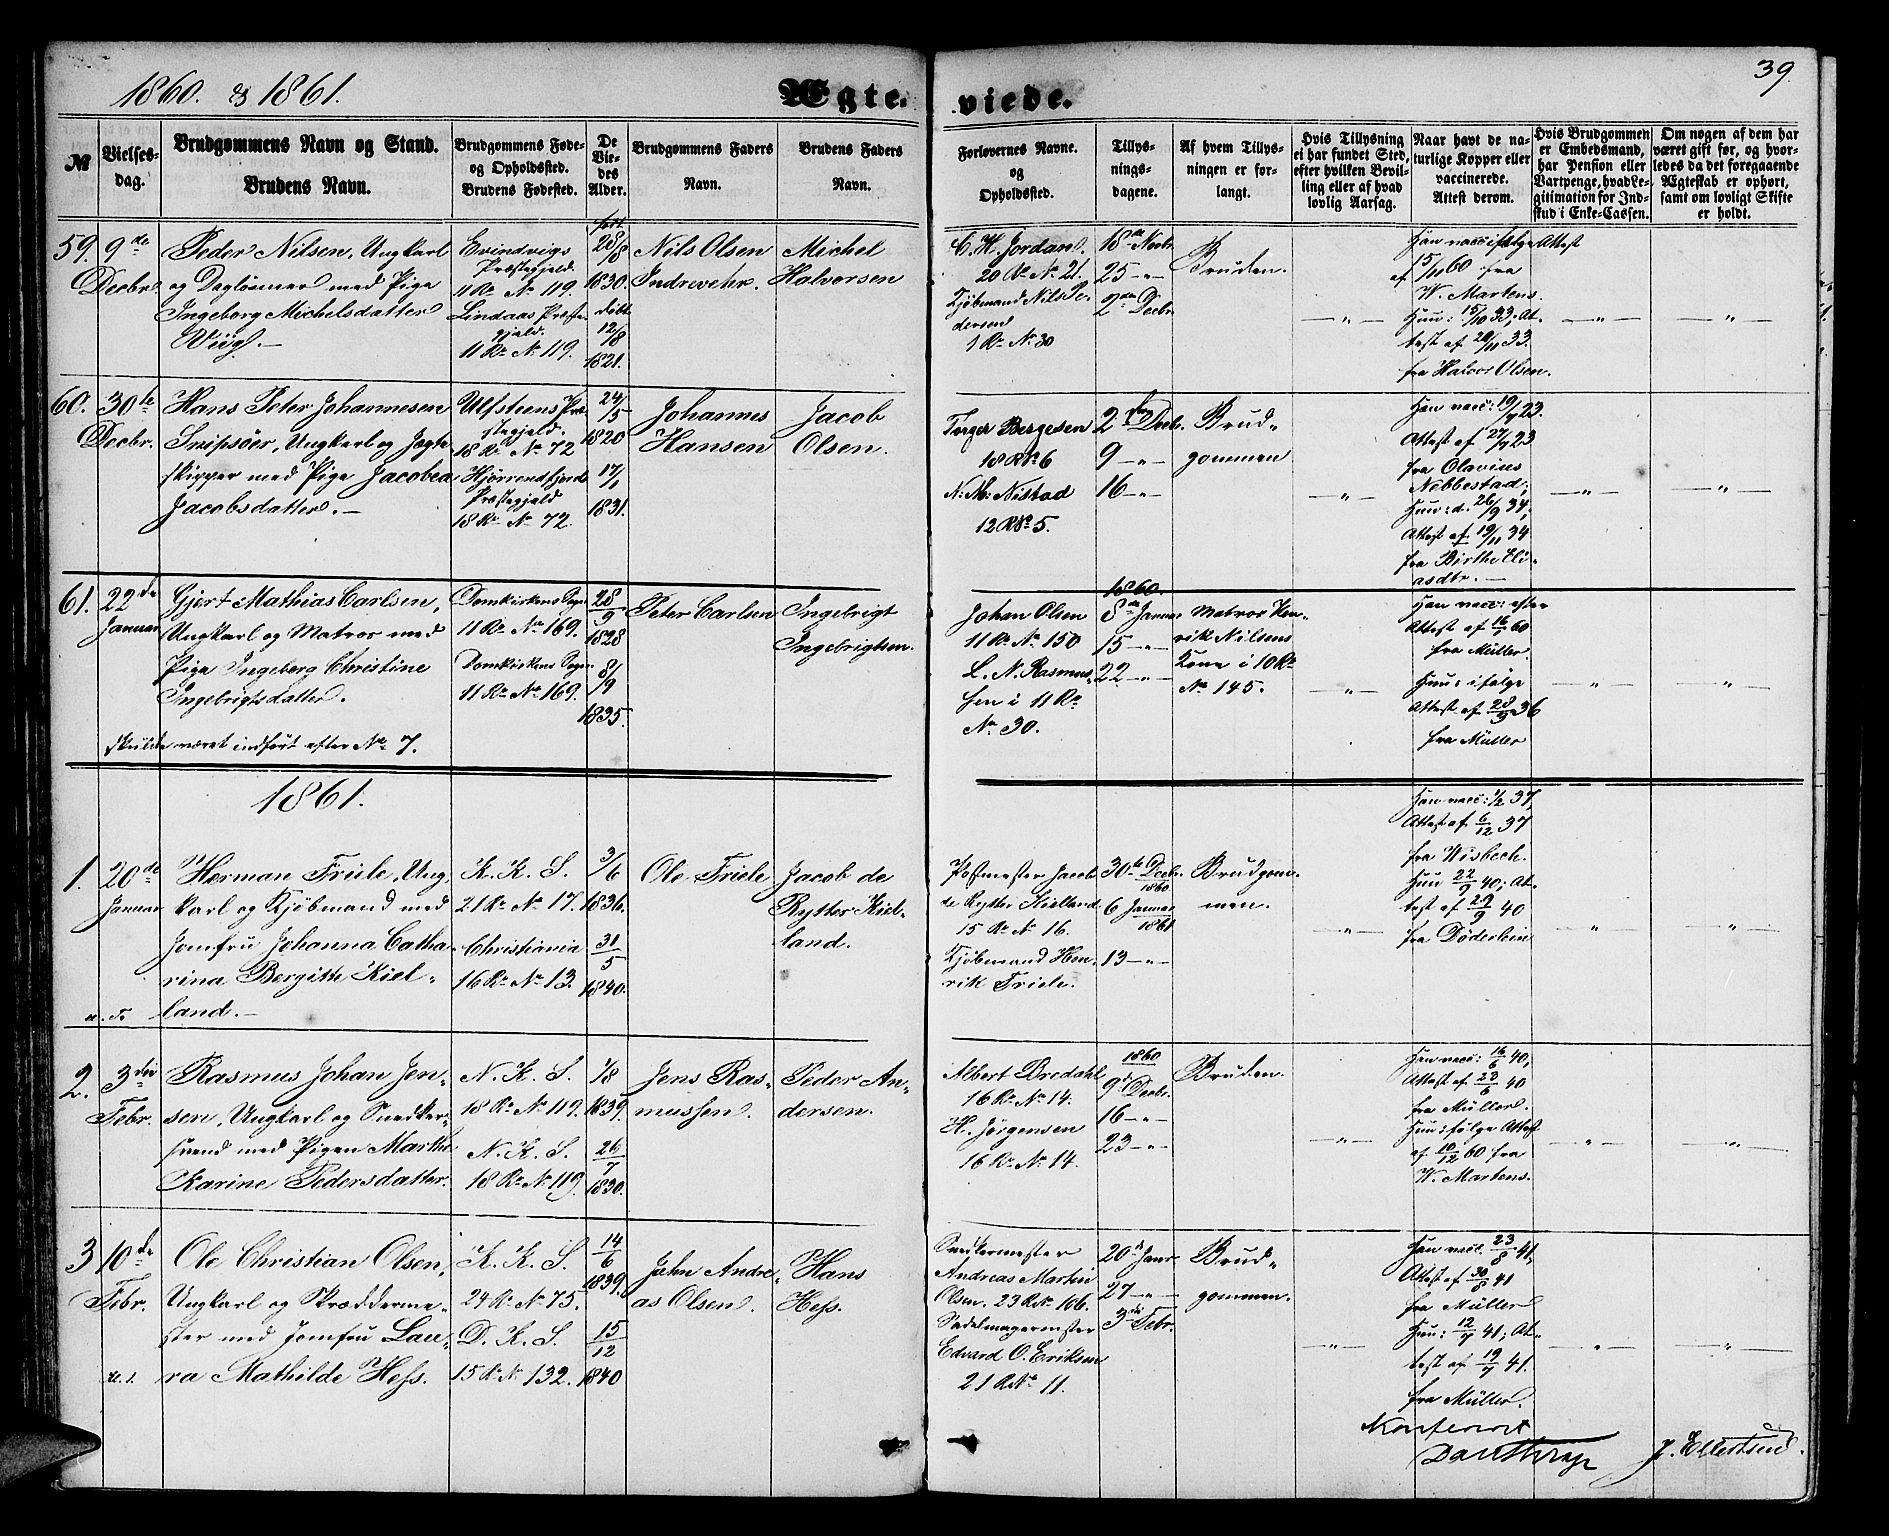 1860. & 1861.
Ægte-
viede.
39
№
Vielses-
dag.
Brudgommens Navn og Stand.
Brudens Navn.
Brudgommens Føde-
og Opholdssted.
Brudens Fødested.
De
Vie-
des
Alder.
Brudgommens Faders
Navn.
Brudens Faders
Navn.
Forlovernes Navne.
og
Opholdssted.
Tillys-
nings-
dagene.
Af hvem Tillys-
ningen er for-
langt.
Hvis Tillysning
ei har fundet Sted,
efter hvilken Bevil-
ling eller af hvad
lovlig Aarsag.
Naar havt de na-
turlige Kopper eller
vaccinerede.
Attest derom.
Hvis Brudgommen
er Embedsmand,
har Pension eller
Vartpenge, hvad Le-
gitimation for Ind-
skud i Enke-Cassen.
Om nogen af dem har
været gift før, og hvor-
ledes da det foregaaende
Ægteskab er ophørt,
samt om lovligt Skifte
er holdt.
59.
9de
Decbr
Peder Nilsen, Ungkarl
og Dagløsner med Pige
Ingeborg Michelsdatter
Wiig.—
Evindvigs
Præstegjeld.
11 Rd No 119.
Lindaas Præste-
gjeld.
11 Rd No 119.
født
28/8
1830.
døbt
12/8
1821.
Nils Olsen
Indrevehr.
Michel
Halvorsen
C. H. Jordan.
20 Rd No 21.
Kjøbmand Nils Pe-
dersen
1 Rd No 30
18de Novbr.
25 —"—
2den Decbr
Bruden.
—"—
Han vacc: ifølge Attest
af 15/11 60 fra
W. Martens.
Hun: 15/10 33; At-
test af 20/11 33.
fra Halvor Olsen.
—"—
—"—
60.
30te
Decbr.
Hans Peter Johannesen
Snipsöer, Ungkarl og Jagte-
skipper med Pige Jacobea
Jacobsdatter.—
Ulfsteens Præ-
stegjeld.
18 Rd No 72
Hjörrendfjords
Præstegjeld
18 Rd No 72.
24/5
1820
17/1
1831.
Johannes
Hansen
Jacob
Olsen.
Torger Bergesen
18 R No 6
N: M: Nistad
12 R No 5.
2den Decbr.
9 —"—
16 —"—
Brud-
gommen
—"—
Han vacc: 19/7 23.
Attest af 27/7 23
fra Olavius
Nebbestad;
Hun: d. 26/9 34,
Attest af 19/11 34
fra Birthe Eli-
asdtr.—
—"—
—"—
61.
22de
Januar
Gjert Mathias Carlsen,
Ungkarl og Matros med
Pige Ingeborg Christine
Ingebrigtsdatter.
skulde været indført efter No 7.
Domkirkens Sogn
11 Rd No 169.
Domkirkens Sogn
11 Rd No 169.
28/9
1828
8/9
1835.
Peter Carlsen
Ingebrigt
Ingebrigtsen.
Johan Olsen
11 Rd No 150
L. N. Rasmus-
sen i 11 Rd
No 30.
1860.
8de Januar
15 —"—
22 —"—
Matros Hen-
rik Nilsens
Kone i 10 Rd
No 145.
—"—
Han vacc: efter
Attest af 16/1 60
fra Müller.
Hun: ifølge
Attest af 28/9 36
fra Müller
—"—
—"—
1861.
1.
20de
Januar
Herman Friele, Ung-
karl og Kjøbmand med
Jomfru Johanna Catha-
rina Bergitte Kiel-
land.—
K. K. S.
21 Rd No 17.
Christiania
16 Rd No 13.
3/6
1836.
31/5
1840.
Ole Friele
Jacob de
Rytter Kiel-
land.
Postmester Jacob
de Rytter Kielland
15 Rd No 16.
Kjøbmand Hen-
rik Friele.
30te Decbr.
1860
6 Januar
1861
13 —"—
Brudgom-
men.
—"—
Han vacc: 1/2 37,
Attest af 6/12 37
fra Wisbech.
Hun 22/9 40; At-
test af 29/9 40
fra Døderlein
—"—
—"—
2.
3die
Febr.
Rasmus Johan Jen-
sen, Ungkarl og Snedker-
svend med Pigen Marthe
Karine Pedersdatter.
N. K. S.
18 Rd No 119.
N. K. S.
18 Rd No 119.
1/8
1839.
26/7
1830.
Jens Ras-
mussen.
Peder An-
dersen.
Albert Bredahl
16 Rd No 14.
H. Jørgensen
16 Rd No 14.
1860
9de Decbr.
16 —"—
23 —"—
Bruden.
—"—
Han vacc: 16/6 40,
Attest af 28/6 40
fra Müller.
Hun: følge Attest
af 10/12 60 fra
W. Martens.
—"—
—"—
3
10de
Febr.
Ole Christian Olsen,
Ungkarl og Skrædderme-
ster med Jomfru Lau-
ra Mathilde Hess.
K. K. S.
24 Rd No 75.
D. K. S.
15 Rd No 132.
14/6
1839.
15/12
1840
John Andre-
as Olsen.
Hans
Hess.
Snedkermester
Andreas Martin
Olsen. 23 R No 106.
Sadelmagermester
Edvard O. Eriksen
21 R No 11.
20de Janr
27 —"—
3die Febr.
Brud-
gommen.
—"—
Han vacc. 23/8 41,
Attest af 30/8 41
fra Müller
Hun: 12/7 41; At-
test af 19/7 41.
fra Müller.
—"—
—"—
Konfereret
J. Ellertsen.